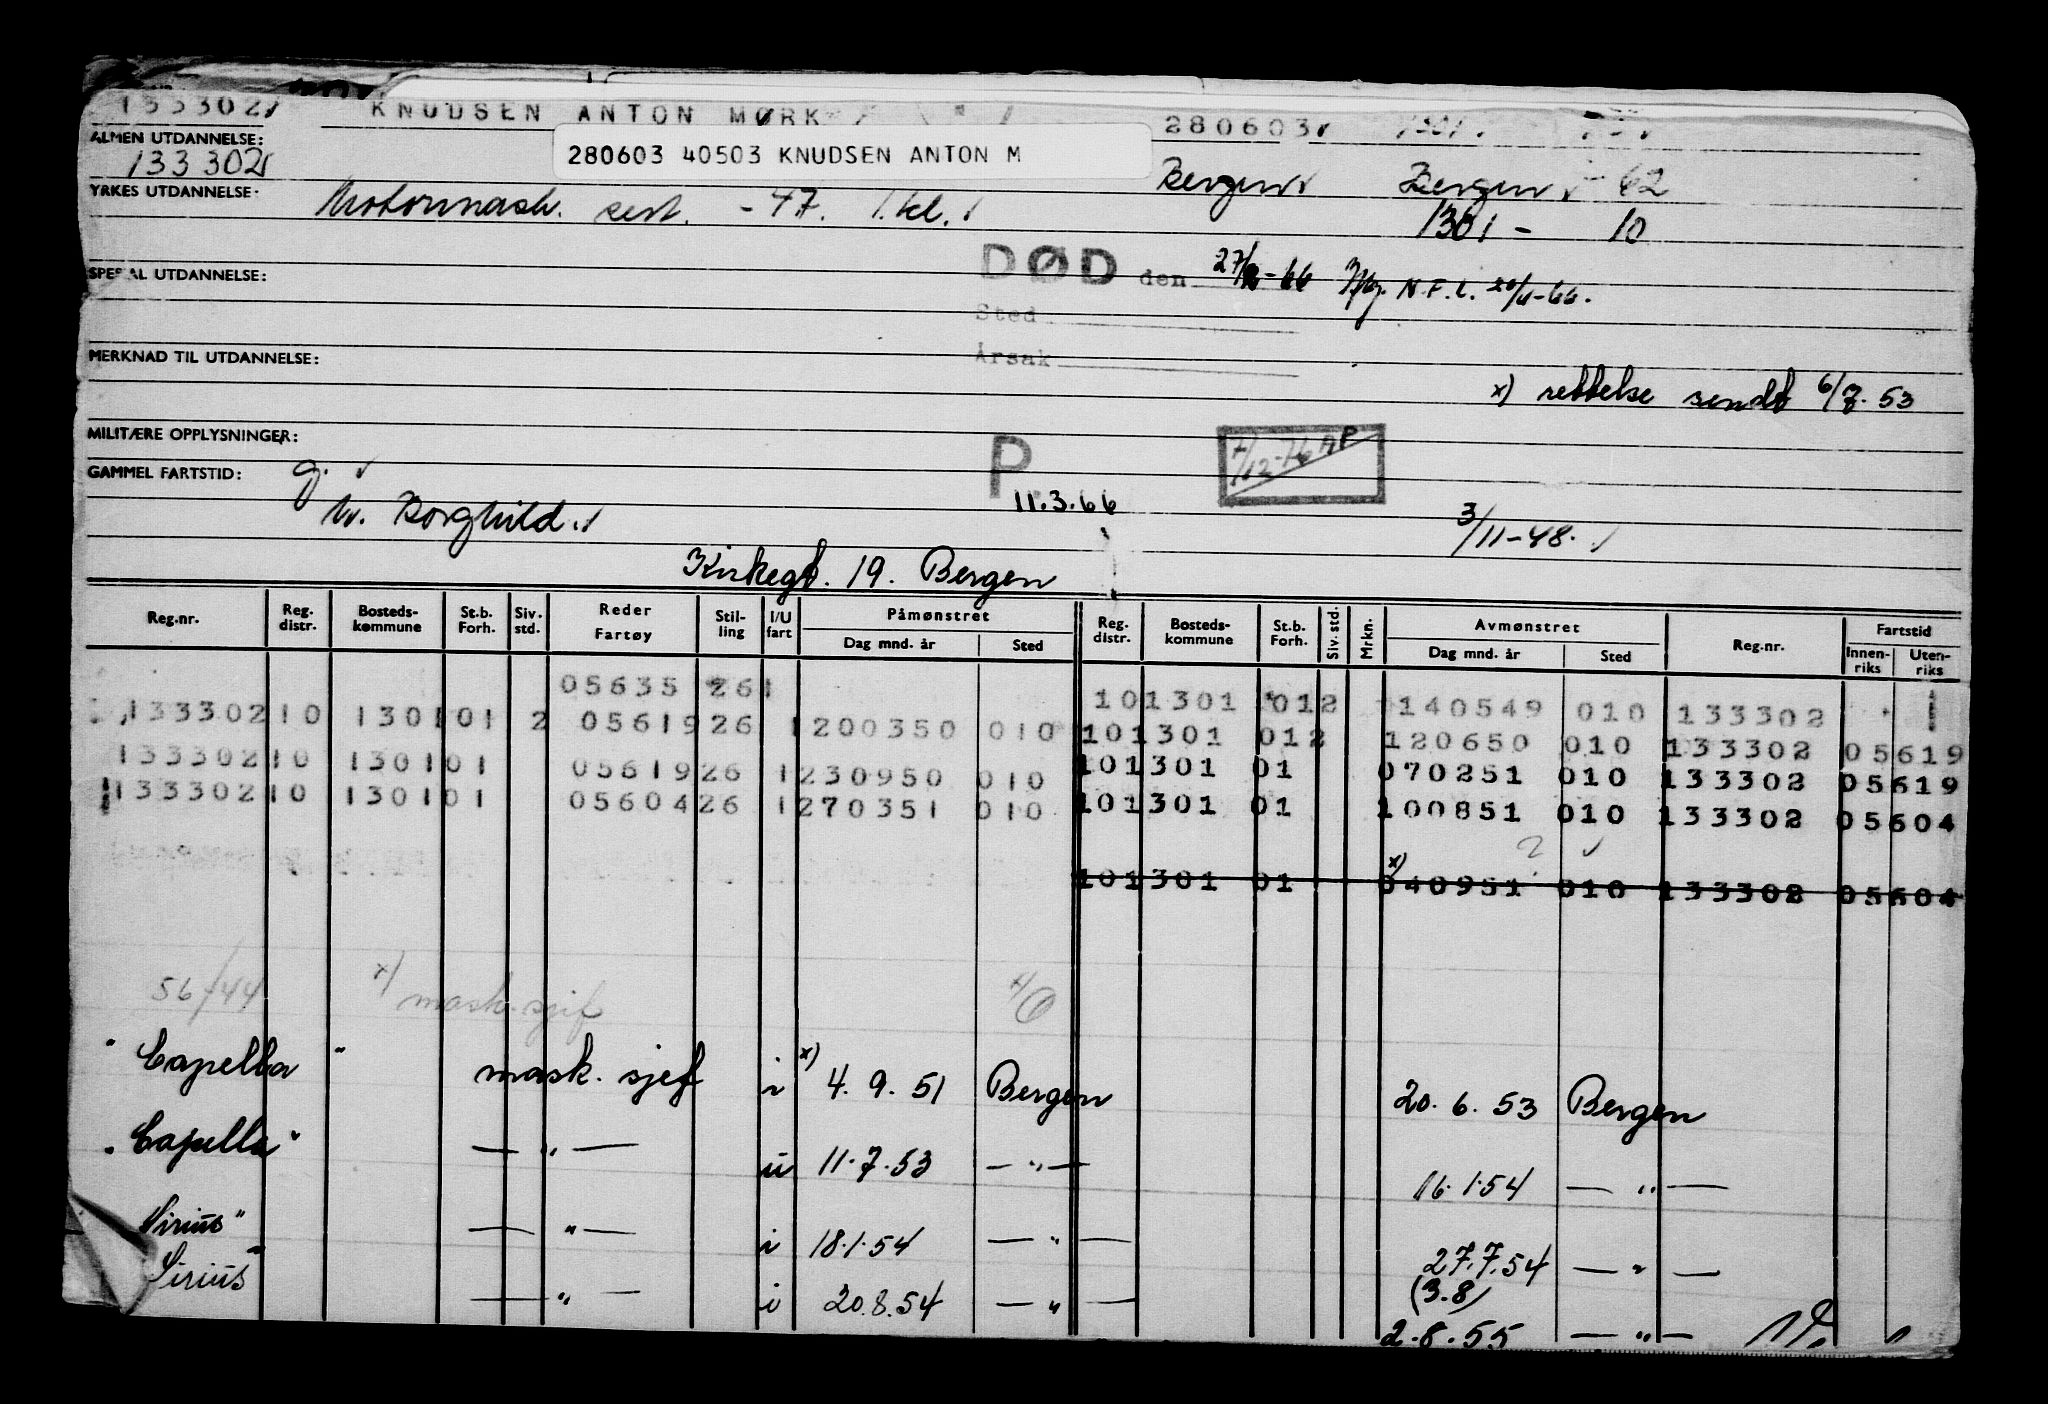 133302 KNUDSEN ANTON MØRK 280603
ALMEN UTDANNELSE:
280603 40503 KNUDSEN ANTON M
133302 Bergen Bergen 62
YRKES UTDANNELSE: Motormask. sert. - 47. 1.kl. 1301 - 10
SPESIAL UTDANNELSE: DØD den 27/2-66 N.F.L.
Sted
Årsak
MERKNAD TIL UTDANNELSE:
x) rettelse sendt 6/7. 53
MILITÆRE OPPLYSNINGER: P 7/12-76 AP
GAMMEL FARTSTID: g.
11.3.66
m. Borghild. 3/11-48.
Kirkegt. 19. Bergen
Reg.nr. Reg. distr. Bosteds-kommune St.b. Forh. Siv. std. Reder Fartøy Stil-ling I/U fart Påmønstret Dag mnd. år Sted Reg. distr. Bosteds-kommune St.b. Forh. Siv. std. Mrkn. Avmønstret Dag mnd. år Sted Reg.nr. Fartstid Innen-riks Uten-riks
05635 261 101301 012 140549 010 133302
133302 10 1301 01 2 05619 26 1 200350 010 101301 012 120650 010 133302 05619
133302 10 1301 01 05619 26 1 230950 010 101301 01 070251 010 133302 05619
133302 10 1301 01 05604 26 1 270351 010 101301 01 100851 010 133302 05604
?
x)
101301 01 040951 010 133302 05604
56/44 x) mask. sjef
"Capella" mask. sjef i x) 4.9.51 Bergen 20.6.53 Bergen
"Capella" — " — u 11.7.53 — " — 16.1.54 — " —
Sirius" — " — i 18.1.54 — " — 27.7.54 — " —
(3.8)
Sirius" — " — i 20.8.54 — " — 2.8.55 — " —